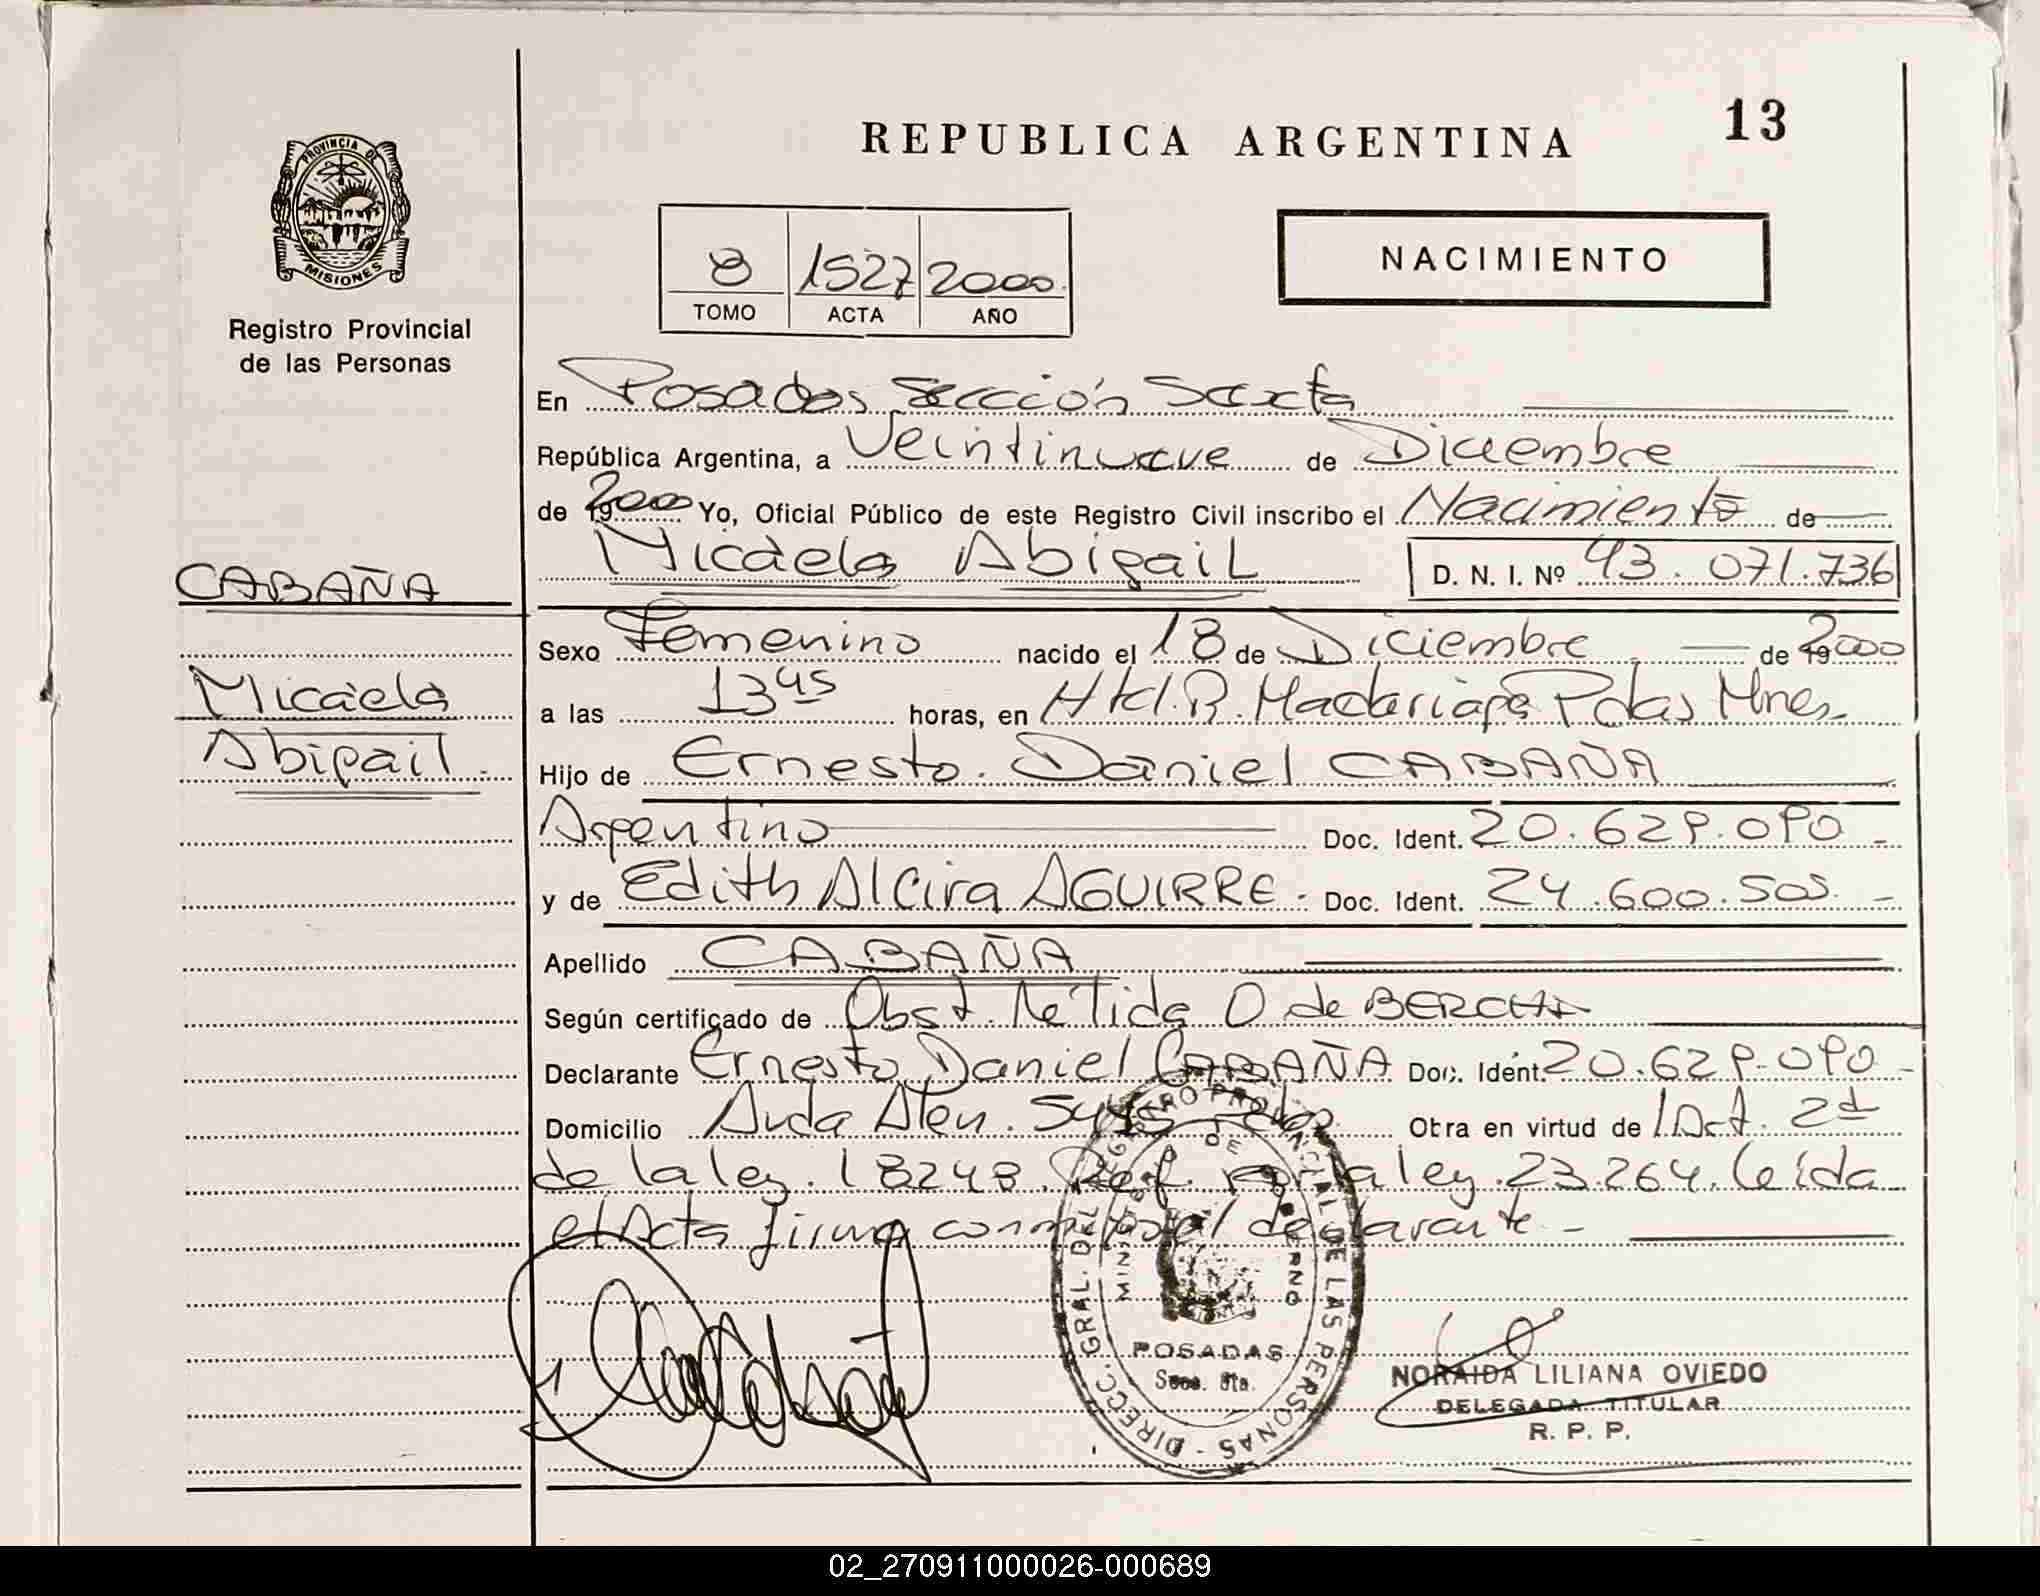 13
REPUBLICA ARGENTINA
PROVINCIA DE
MISIONES
Registro Provincial
de las Personas
8 1527 2000
TOMO ACTA AÑO
NACIMIENTO
En Posadas Sección Sexta
República Argentina, a Veintinueve de Diciembre
de 19 2000 Yo, Oficial Público de este Registro Civil inscribo el Nacimiento de
Micaela Abigail D. N. I. Nº 43.071.736
CABAÑA
Micaela
Abigail.
Sexo Femenino nacido el 18 de Diciembre de 19 2000
a las 13 45 horas, en Htal. R. Madariaga Pdas Mnes.
Hijo de Ernesto Daniel CABAÑA
Argentino Doc. Ident. 20.629.090
y de Edith Alcira AGUIRRE Doc. Ident. 24.600.505.
Apellido CABAÑA
Según certificado de Obst. Nélida O de
Declarante Ernesto Daniel CABAÑA Doc. Ident. 20.629.090
Domicilio Avda Alem. Pdas Otra en virtud de
de la ley. 18248. por la ley. 23.264. leída
el Acta firma conmigo el declarante.
DIRECC. GRAL. DEL REGISTRO PROVINCIAL DE LAS PERSONAS
MINISTERIO DE GOBIERNO
POSADAS
Secc. 6ta.
NORAIDA LILIANA OVIEDO
DELEGADA TITULAR
R. P. P.
02_270911000026-000689